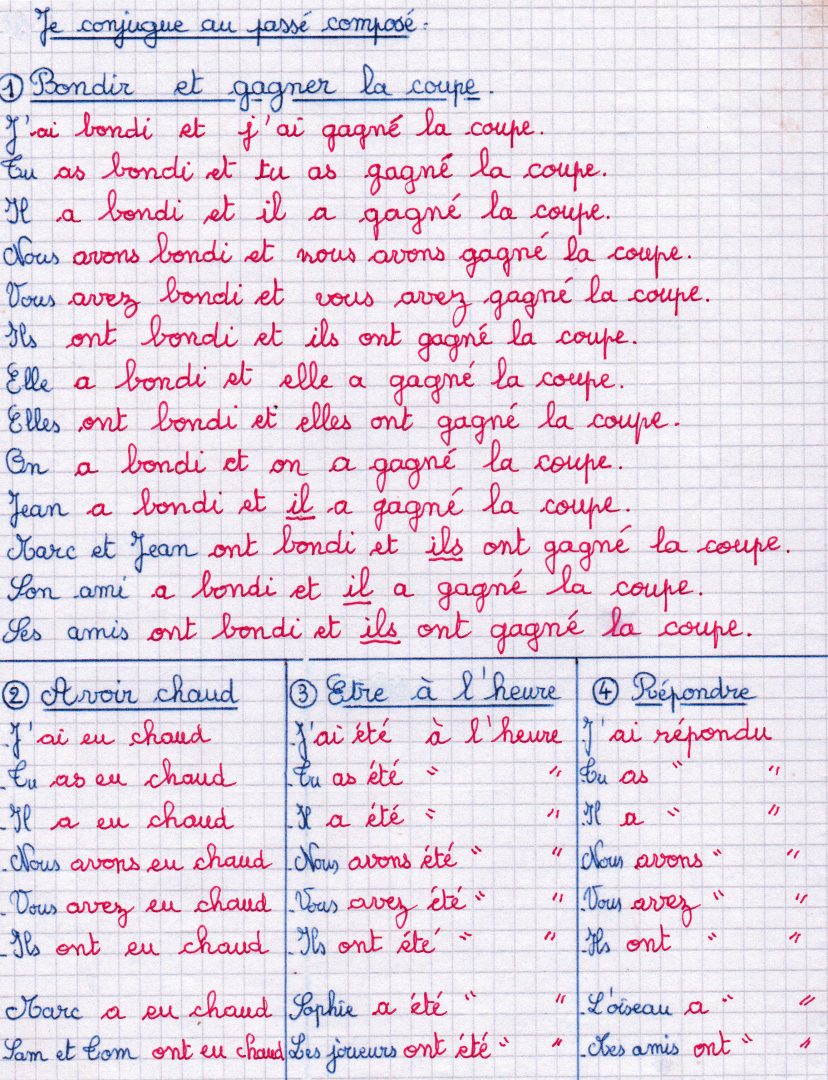 Je conjugue au passé composé.
① Bondir et gagner la coupe.
J'ai bondi et j'ai gagné la coupe.
Tu as bondi et tu as gagné la coupe.
Il a bondi et il a gagné la coupe.
Nous avons bondi et nous avons gagné la coupe.
Vous avez bondi et vous avez gagné la coupe.
Ils ont bondi et ils ont gagné la coupe.
Elle a bondi et elle a gagné la coupe.
Elles ont bondi et elles ont gagné la coupe.
On a bondi et on a gagné la coupe.
Jean a bondi et il a gagné la coupe.
Marc et Jean ont bondi et ils ont gagné la coupe.
Son ami a bondi et il a gagné la coupe.
Ses amis ont bondi et ils ont gagné la coupe.
② Avoir chaud
J'ai eu chaud
Tu as eu chaud
Il a eu chaud
Nous avons eu chaud
Vous avez eu chaud
Ils ont eu chaud
Marc a eu chaud
Sam et Tom ont eu chaud
③ Etre à l'heure
J'ai été à l'heure
Tu as été " "
Il a été " "
Nous avons été " "
Vous avez été " "
Ils ont été " "
Sophie a été " "
Les joueurs ont été " "
④ Répondre
J'ai répondu
Tu as " "
Il a " "
Nous avons " "
Vous avez " "
Ils ont " "
L'oiseau a " "
Mes amis ont " "